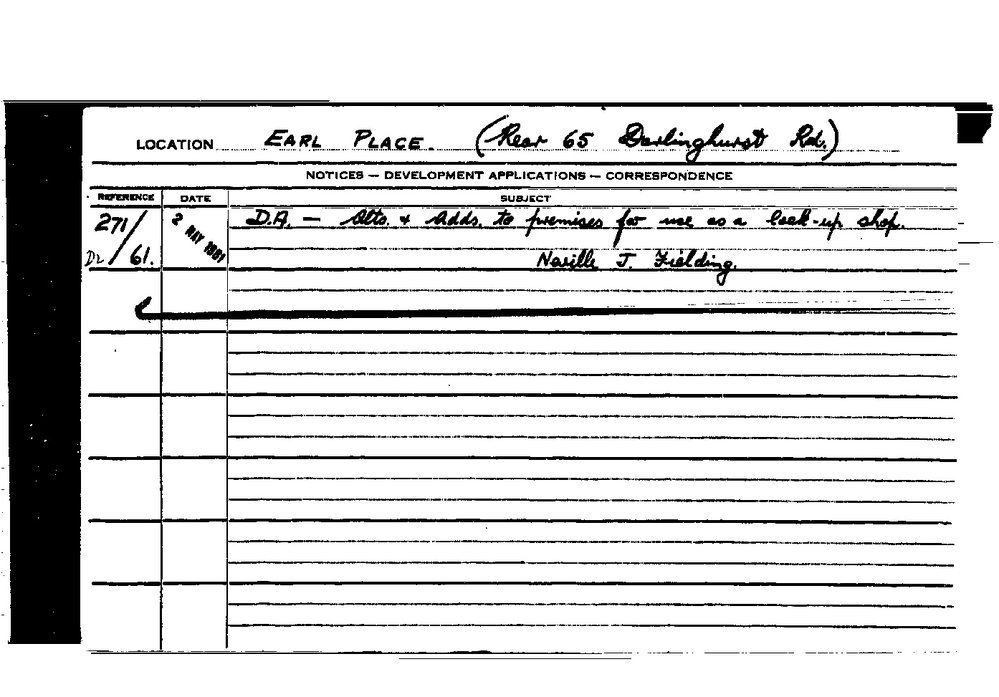 LOCATION EARL PLACE. (Rear 65 Darlinghurst Rd.)
NOTICES — DEVELOPMENT APPLICATIONS — CORRESPONDENCE
REFERENCE DATE SUBJECT
271/ 2 MAY 1961 D.A. — Alts. & Adds. to premises for use as a lock-up shop.
61. Neville J. Fielding.